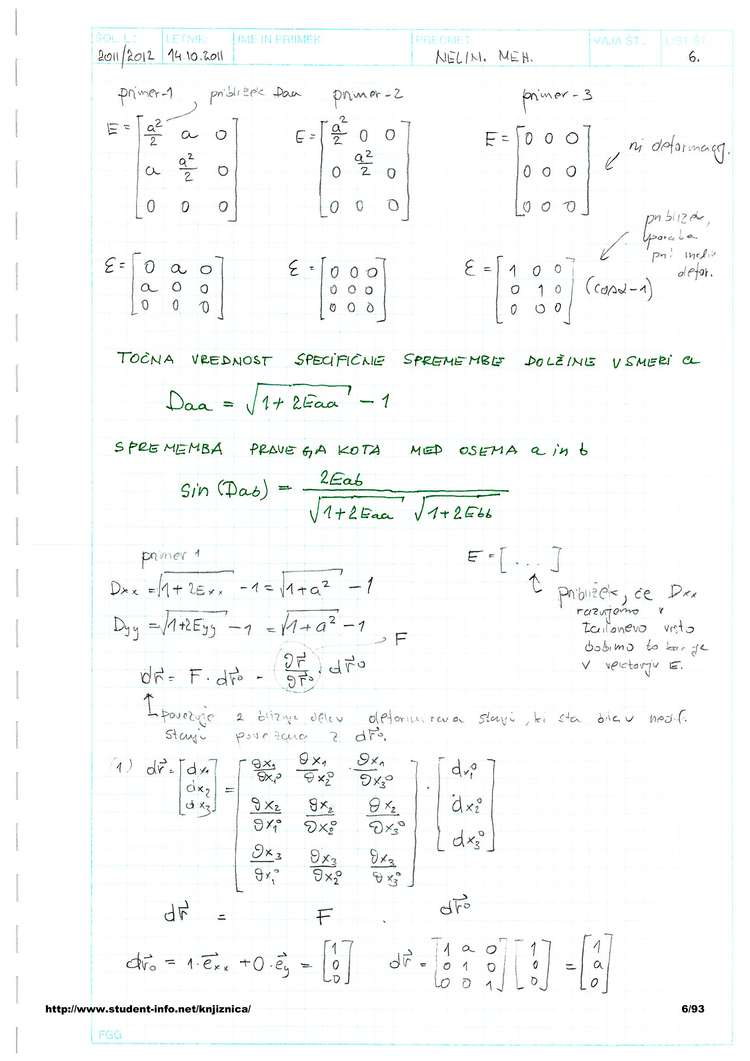 ŠOL. L.: LETNIK: IME IN PRIIMEK PREDMET VAJA ŠT.: LIST ŠT.
2011/2012 14.10.2011 NELIN. MEH. 6.
primer-1 približek Daa primer-2 primer-3
E = [a²/2 a 0; a a²/2 0; 0 0 0] E = [a²/2 0 0; 0 a²/2 0; 0 0 0] E = [0 0 0; 0 0 0; 0 0 0] ni deformacij.
približek,
uporaba
pri malih
defor.
ε = [0 a 0; a 0 0; 0 0 0] ε = [0 0 0; 0 0 0; 0 0 0] ε = [1 0 0; 0 1 0; 0 0 0] (cosα-1)
TOČNA VREDNOST SPECIFIČNE SPREMEMBE DOLŽINE V SMERI a
Daa = √(1+2Eaa) - 1
SPREMEMBA PRAVEGA KOTA MED OSEMA a in b
sin (Dab) = 2Eab / √(1+2Eaa) √(1+2Ebb)
primer 1 E = [...]
Dxx = √(1+2Exx) - 1 = √(1+a²) - 1
Dyy = √(1+2Eyy) - 1 = √(1+a²) - 1
približek, če Dxx
razvijemo v
vrsto
dobimo to kar je
v E.
F
dr⃗ = F · dr⃗⁰ = ∂r⃗/∂r⃗⁰ · dr⃗⁰
povezuje 2 bližnja delca stanji, ki sta bila v nedef.
stanji povezana z dr⃗⁰.
(1) dr⃗ = [dx₁; dx₂; dx₃] = [∂x₁/∂x₁⁰ ∂x₁/∂x₂⁰ ∂x₁/∂x₃⁰; ∂x₂/∂x₁⁰ ∂x₂/∂x₂⁰ ∂x₂/∂x₃⁰; ∂x₃/∂x₁⁰ ∂x₃/∂x₂⁰ ∂x₃/∂x₃⁰] · [dx₁⁰; dx₂⁰; dx₃⁰]
dr⃗ = F · dr⃗⁰
dr⃗₀ = 1·e⃗xx + 0·e⃗y = [1; 0; 0] dr⃗ = [1 a 0; 0 1 0; 0 0 1] [1; 0; 0] = [1; a; 0]
http://www.student-info.net/knjiznica/ 6/93
FGG